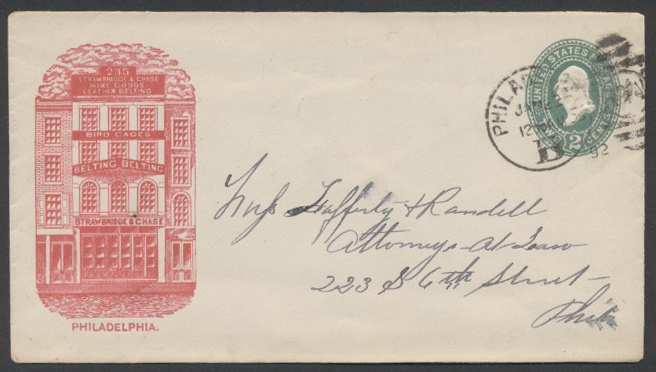 235
STRAWBRIDGE & CHASE
WIRE GOODS
LEATHER BELTING
BIRD CAGES
BELTING BELTING
STRAWBRIDGE & CHASE
PHILADELPHIA.
UNITED STATES
2
CENTS
PHILA
JAN
12
92
Lafferty & Randell
Attorneys-At-Law
223 S 6th Street-
Phila